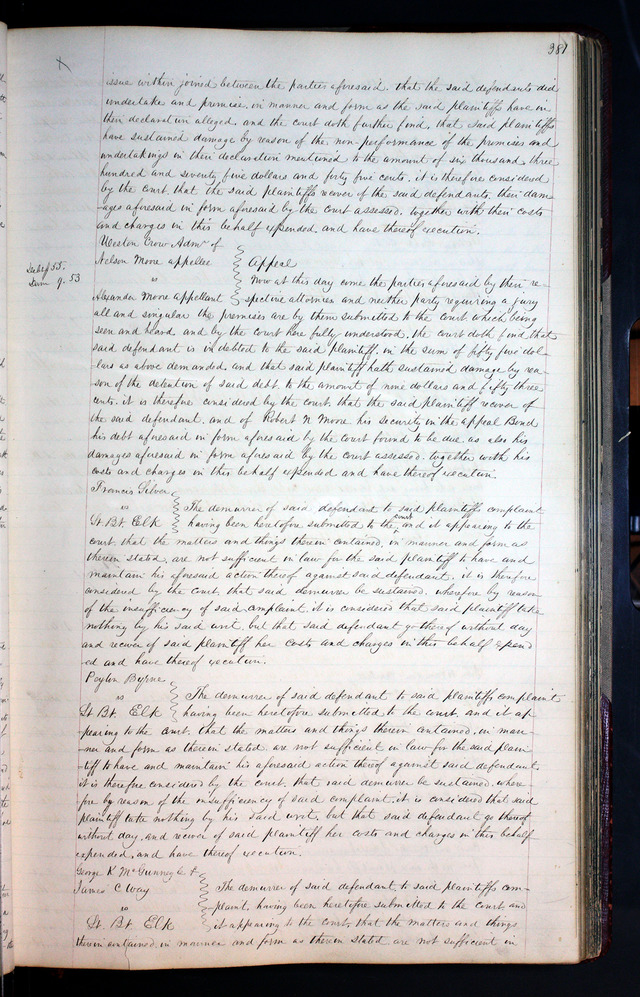 381
issue within joined between the parties aforesaid. that the said defendants did
undertake and promise, in manner and form as the said plaintiffs have in
their declaration alleged, and the court doth further find, that said plaintiffs
have sustained damage by reason of the non-performance of the premises and
undertakings in their declaration mentioned to the amount of six thousand three
hundred and seventy five dollars and forty five cents, it is therefore considered
by the court that the said plaintiffs recover of the said defendants their dam-
ages aforesaid in form aforesaid by the court assessed, together with their costs
and charges in this behalf expended and have thereof execution.
Weston Crow Admr of
Nelson Moore appellee } Appeal
vs Now at this day come the parties aforesaid by their re-
Alexander Moore appellant spective attornies and neither party requiring a jury
all and singular the premises are by them submitted to the court which being
seen and heard and by the court here fully understood, the court doth find that
said defendant is indebted to the said plaintiff in the sum of fifty five dol-
lars as above demanded, and that said plaintiff hath sustained damage by rea-
son of the detention of said debt to the amount of nine dollars and fifty three
cents. it is therefore considered by the court, that the said plaintiff recover of
the said defendant, and of Robert N Moore his security in the appeal Bond
his debt aforesaid in form aforesaid by the court found to be due, as also his
damages aforesaid in form aforesaid by the court assessed, together with his
costs and charges in this behalf expended and have thereof execution.
Francis Silver
vs } The demurrer of said defendant to said plaintiffs complaint
St. Bt. Elk having been heretofore submitted to the court and it appearing to the
court, that the matters and things therein contained, in manner and form as
therein stated, are not sufficient in law for the said plaintiff to have and
maintain his aforesaid action thereof against said defendant. it is therefore
considered by the court, that said demurrer be sustained, wherefore by reason
of the insufficiency of said complaint, it is considered that said plaintiff take
nothing by his said writ, but that said defendant go thereof without day
and recover of said plaintiff her costs and charges in this behalf expend
ed and have thereof execution.
Peyton Byrne
vs } The demurrer of said defendant to said plaintiffs complaint
St. Bt. Elk having been heretofore submitted to the court, and it ap-
pearing to the court, that the matters and things therein contained, in man-
ner and form as therein stated are not sufficient in law for the said plain-
tiff to have and maintain his aforesaid action thereof against said defendant,
it is therefore considered by the court, that said demurrer be sustained, where
fore by reason of the insufficiency of said complaint, it is considered that said
plaintiff take nothing by his said writ, but that said defendant go thereof
without day, and recover of said plaintiff her costs and charges in this behalf
expended, and have thereof execution.
George K McGunnegle &
James C Way } The demurrer of said defendant, to said plaintiffs com-
vs plaint, having been heretofore submitted to the court and
St. Bt. Elk it appearing to the court, that the matters and things
therein contained, in manner and form as therein stated are not sufficient in